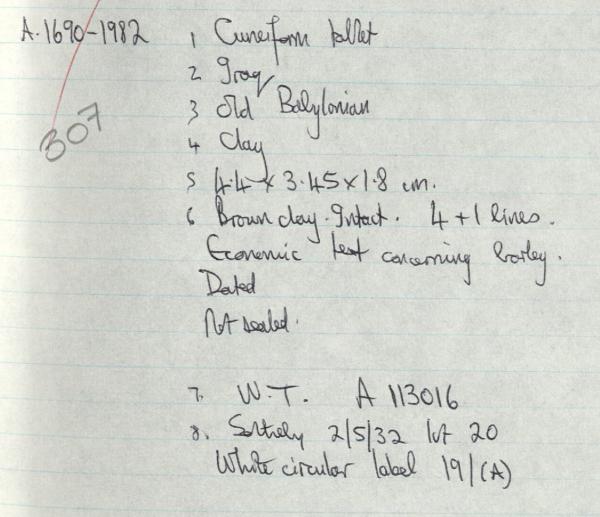 A.1690-1982 1 Cuneiform tablet
2 Iraq
307 3 Old Babylonian
4 Clay
5 4.4 x 3.45 x 1.8 cm.
6 Brown clay. Intact. 4 + 1 lines.
Economic text concerning barley.
Dated
Not sealed.
7. W.T. A 113016
8. Sotheby 2/5/32 lot 20
White circular label 19/(A)